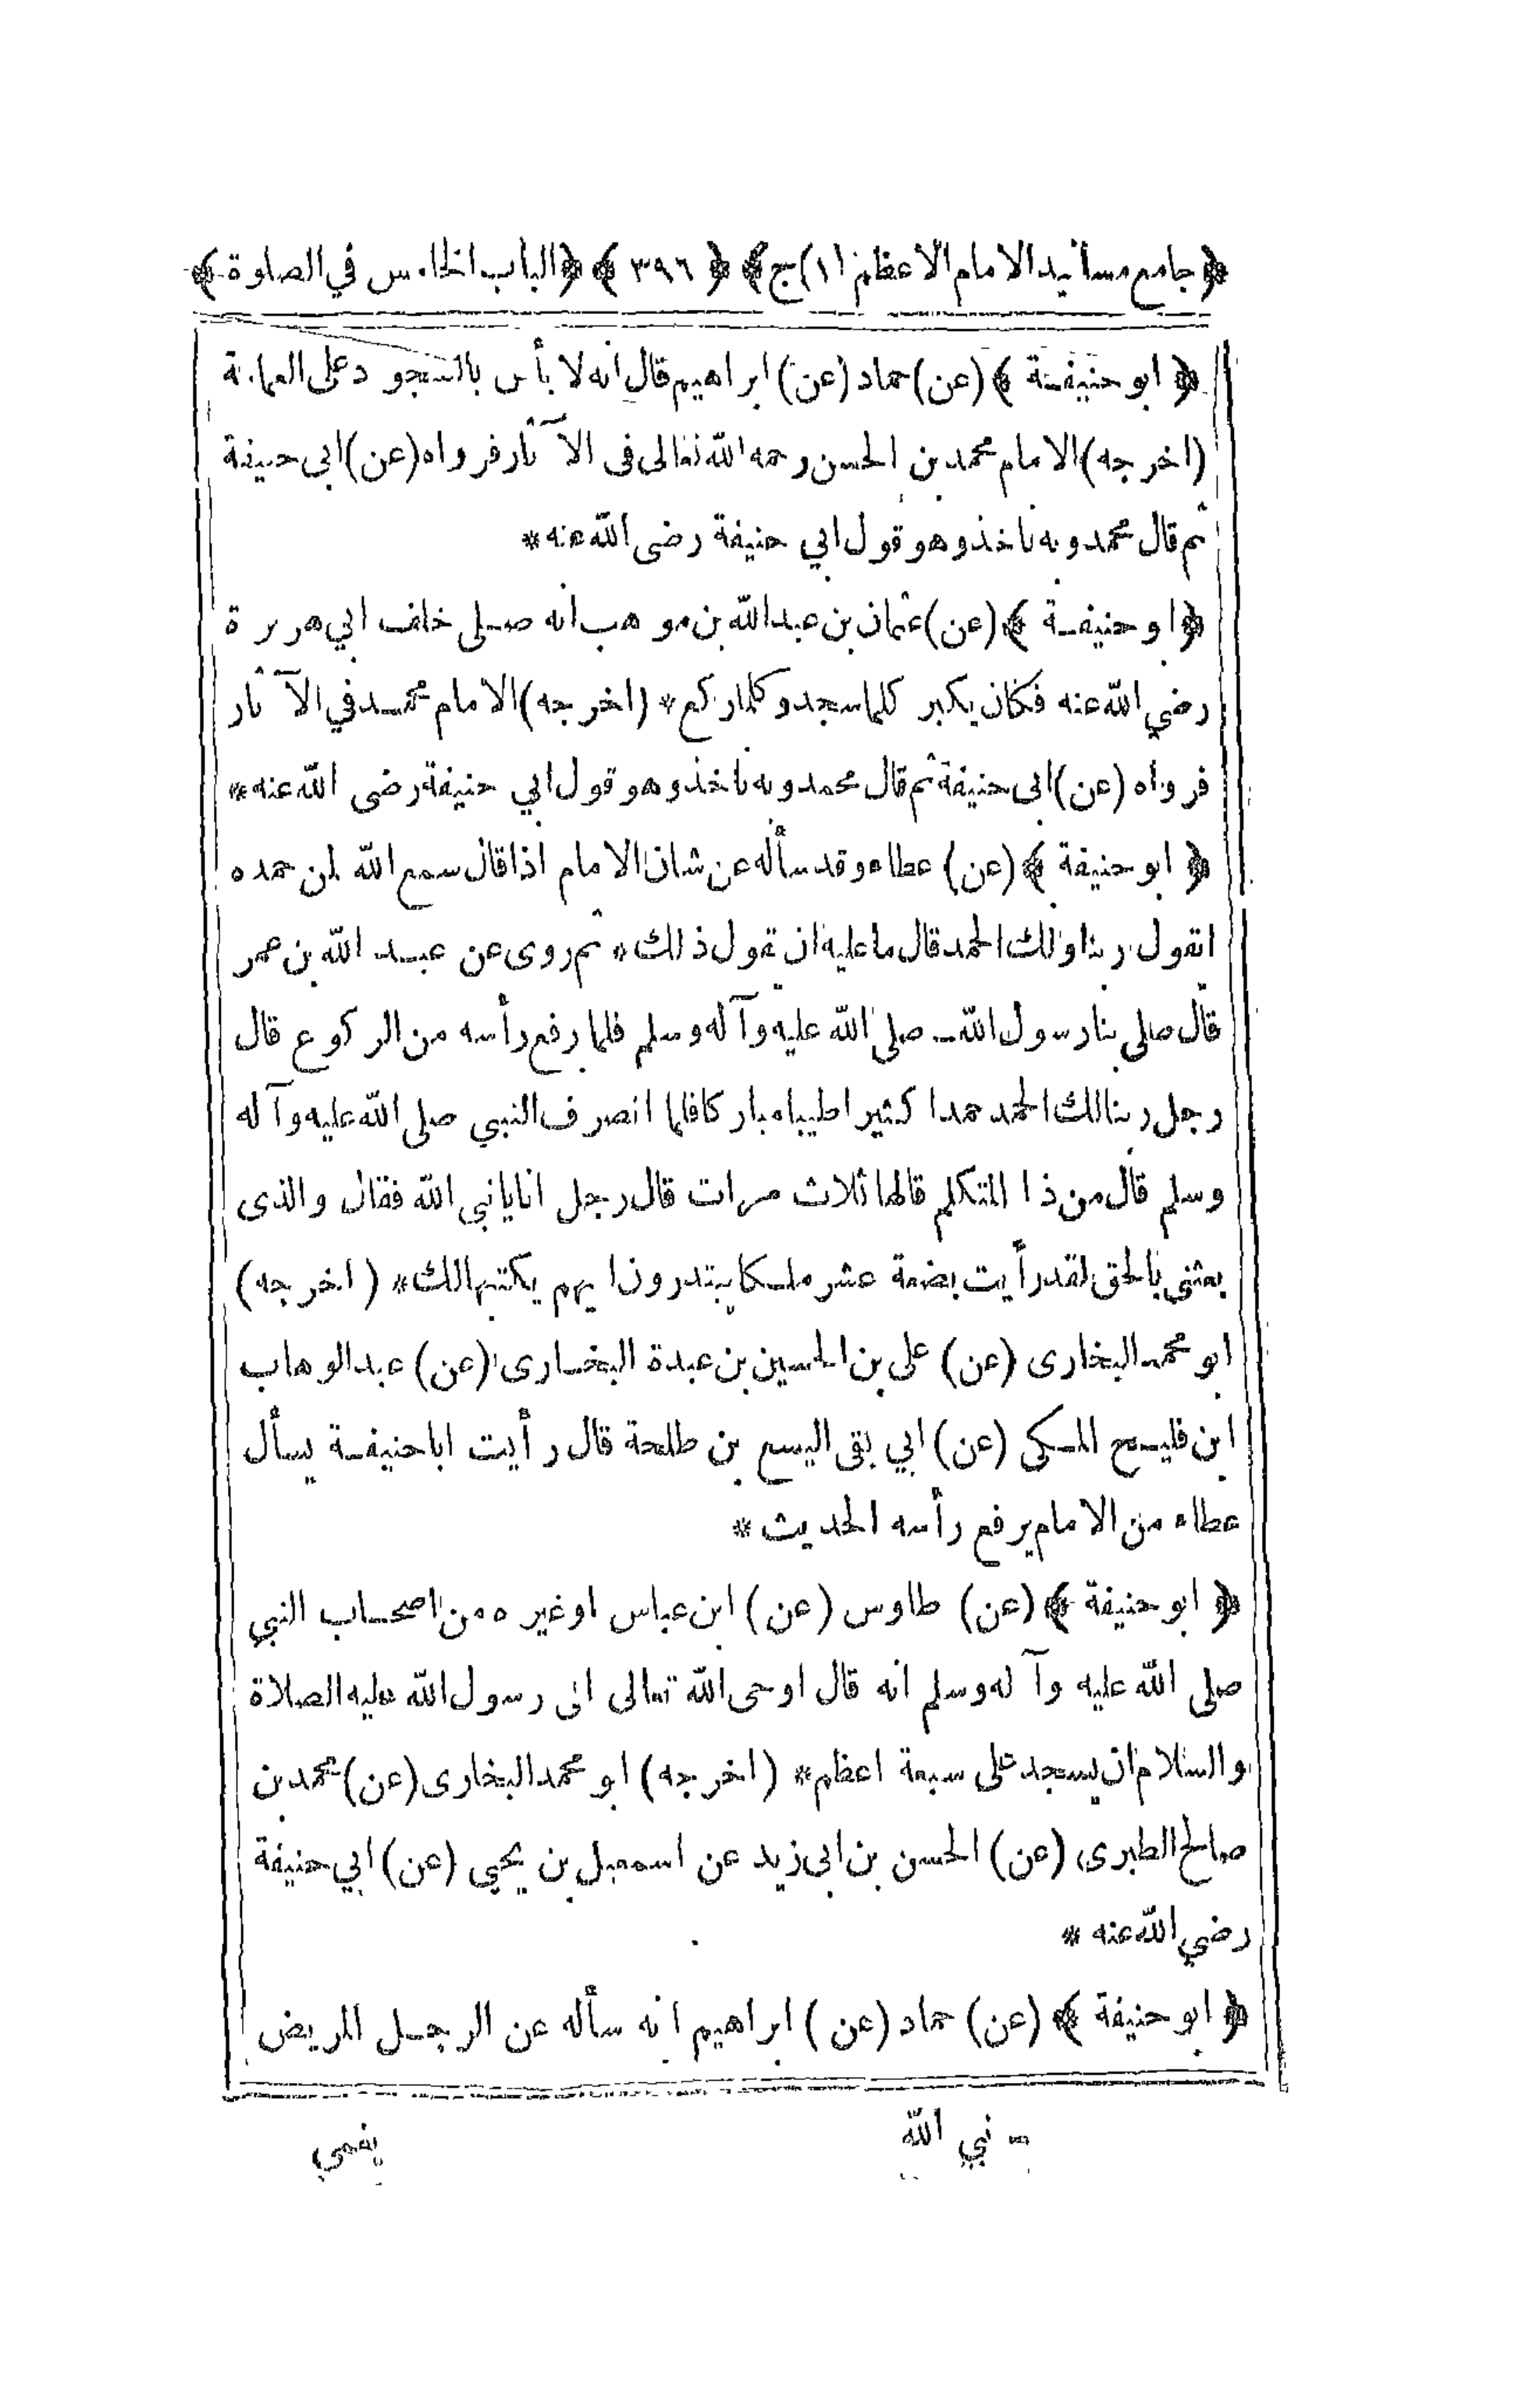 ﴿جامع مسانيد الامام الاعظم(١)ج﴾ ﴿ ٣٩٦ ﴾ ﴿الباب الخامس في الصلوة﴾
﴿ ابو حنيفة ﴾ (عن) حماد (عن) ابراهيم قال انه لا بأس بالسجود على العمامة
(اخرجه) الامام محمد بن الحسن رحمه الله تعالى فى الآثار فرواه (عن) ابى حنيفة
ثم قال محمد وبه ناخذ وهو قول ابي حنيفة رضى الله عنه *
﴿ابو حنيفة ﴾ (عن) عثمان بن عبد الله بن موهب انه صلى خلف ابي هريرة
رضي الله عنه فكان يكبر كلما سجد وكلما ركع * (اخرجه) الامام محمد في الآثار
فرواه (عن) ابى حنيفة ثم قال محمد وبه ناخذ وهو قول ابي حنيفة رضى الله عنه *
﴿ ابو حنيفة ﴾ (عن) عطاء وقد سأله عن شان الامام اذا قال سمع الله لمن حمده
اتقول ربنا ولك الحمد قال ما عليه ان يقول ذلك * ثم روى عن عبد الله بن عمر
قال صلى بنا رسول الله ـ صلى الله عليه وآله وسلم فلما رفع رأسه من الركوع قال
رجل ربنا لك الحمد حمدا كثيرا طيبا مباركا فلما انصرف النبي صلى الله عليه وآله
وسلم قال من ذا المتكلم قالها ثلاث مرات قال رجل انا يا نبي الله فقال والذى
بعثنى بالحق لقد رأيت بضعة عشر ملكا يبتدرون ايهم يكتبها لك * (اخرجه)
ابو محمد البخارى (عن) على بن الحسين بن عبدة البخارى (عن) عبد الوهاب
ابن فليح المكى (عن) ابي بقى اليسع بن طلحة قال رأيت ابا حنيفة يسأل
عطاء من الامام يرفع رأسه الحديث *
﴿ ابو حنيفة ﴾ (عن) طاوس (عن) ابن عباس او غيره من اصحاب النبي
صلى الله عليه وآله وسلم انه قال اوحى الله تعالى الى رسول الله عليه الصلاة
والسلام ان يسجد على سبعة اعظم * (اخرجه) ابو محمد البخارى (عن) محمد بن
صالح الطبرى (عن) الحسن بن ابى زيد عن اسمعيل بن يحيى (عن) ابي حنيفة
رضي الله عنه *
﴿ ابو حنيفة ﴾ (عن) حماد (عن) ابراهيم انه سأله عن الرجل المريض
ـ نبي الله